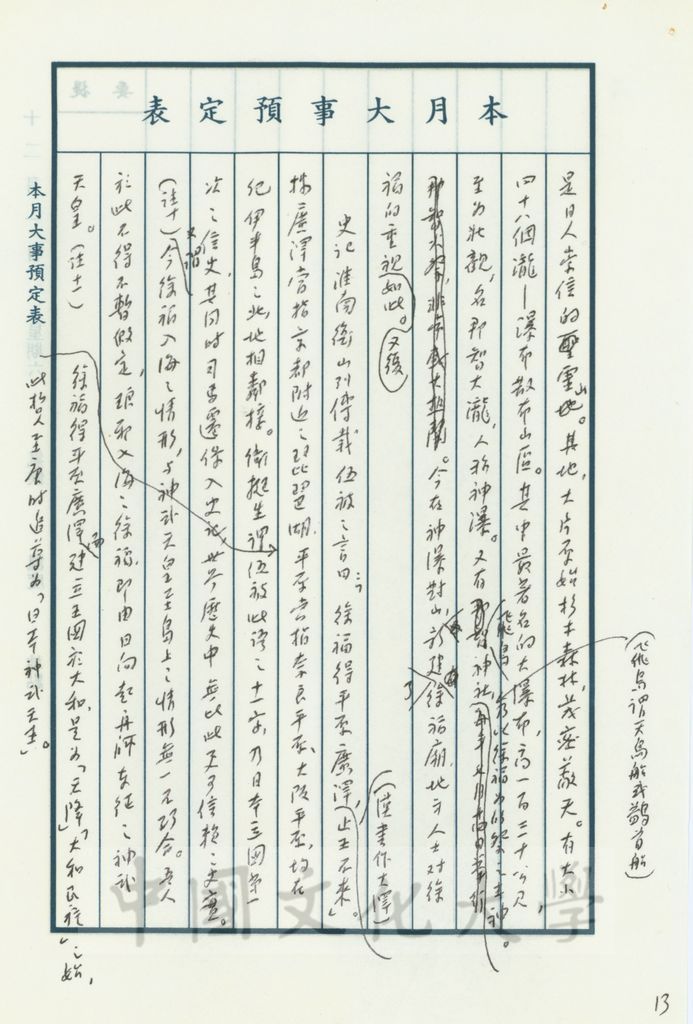 本月大事預定表
(飛鳥謂天鳥船或鷁首船)
是日人崇信的聖靈山地。其地,大片原始杉木森林,茂密蔽天。有大小
四十八個瀧—瀑布散布山區。其中最著名的大瀑布,高一百三十公尺,
至為壯觀,名那智大瀧,人稱神瀑。又有飛鳥神社,為以徐福為的祭之主神。
今在神瀑對山,徐福廟。地方人士對徐
福的重視如此。又後
史記淮南衡山列傳載伍被之言曰:「徐福得平原廣澤,止王不來」。
(漢書作大澤)
按廣澤當指京都附近之琵琶湖。平原當指奈良平原、大阪平原,均在
紀伊半島之北,地相鄰接。衛挺生謂伍被此語之十一字,乃日本立國第一
次之信史,其同時司馬遷保入史記,世界歷史中無比此更可信賴之史實。
(註十)又謂今徐福入海之情形,與神武天皇在島上之情形無一不巧合。吾人
於此不得不暫假定,琅邪入海之徐福,即由日向起舟師東征之神武
天皇。(註十一)
徐福得平原廣澤而建立王國於大和,是為「天降」「大和民族」之始,
此哲人至唐時追尊為「日本神武天皇」。
本月大事預定表
中國文化大學
13